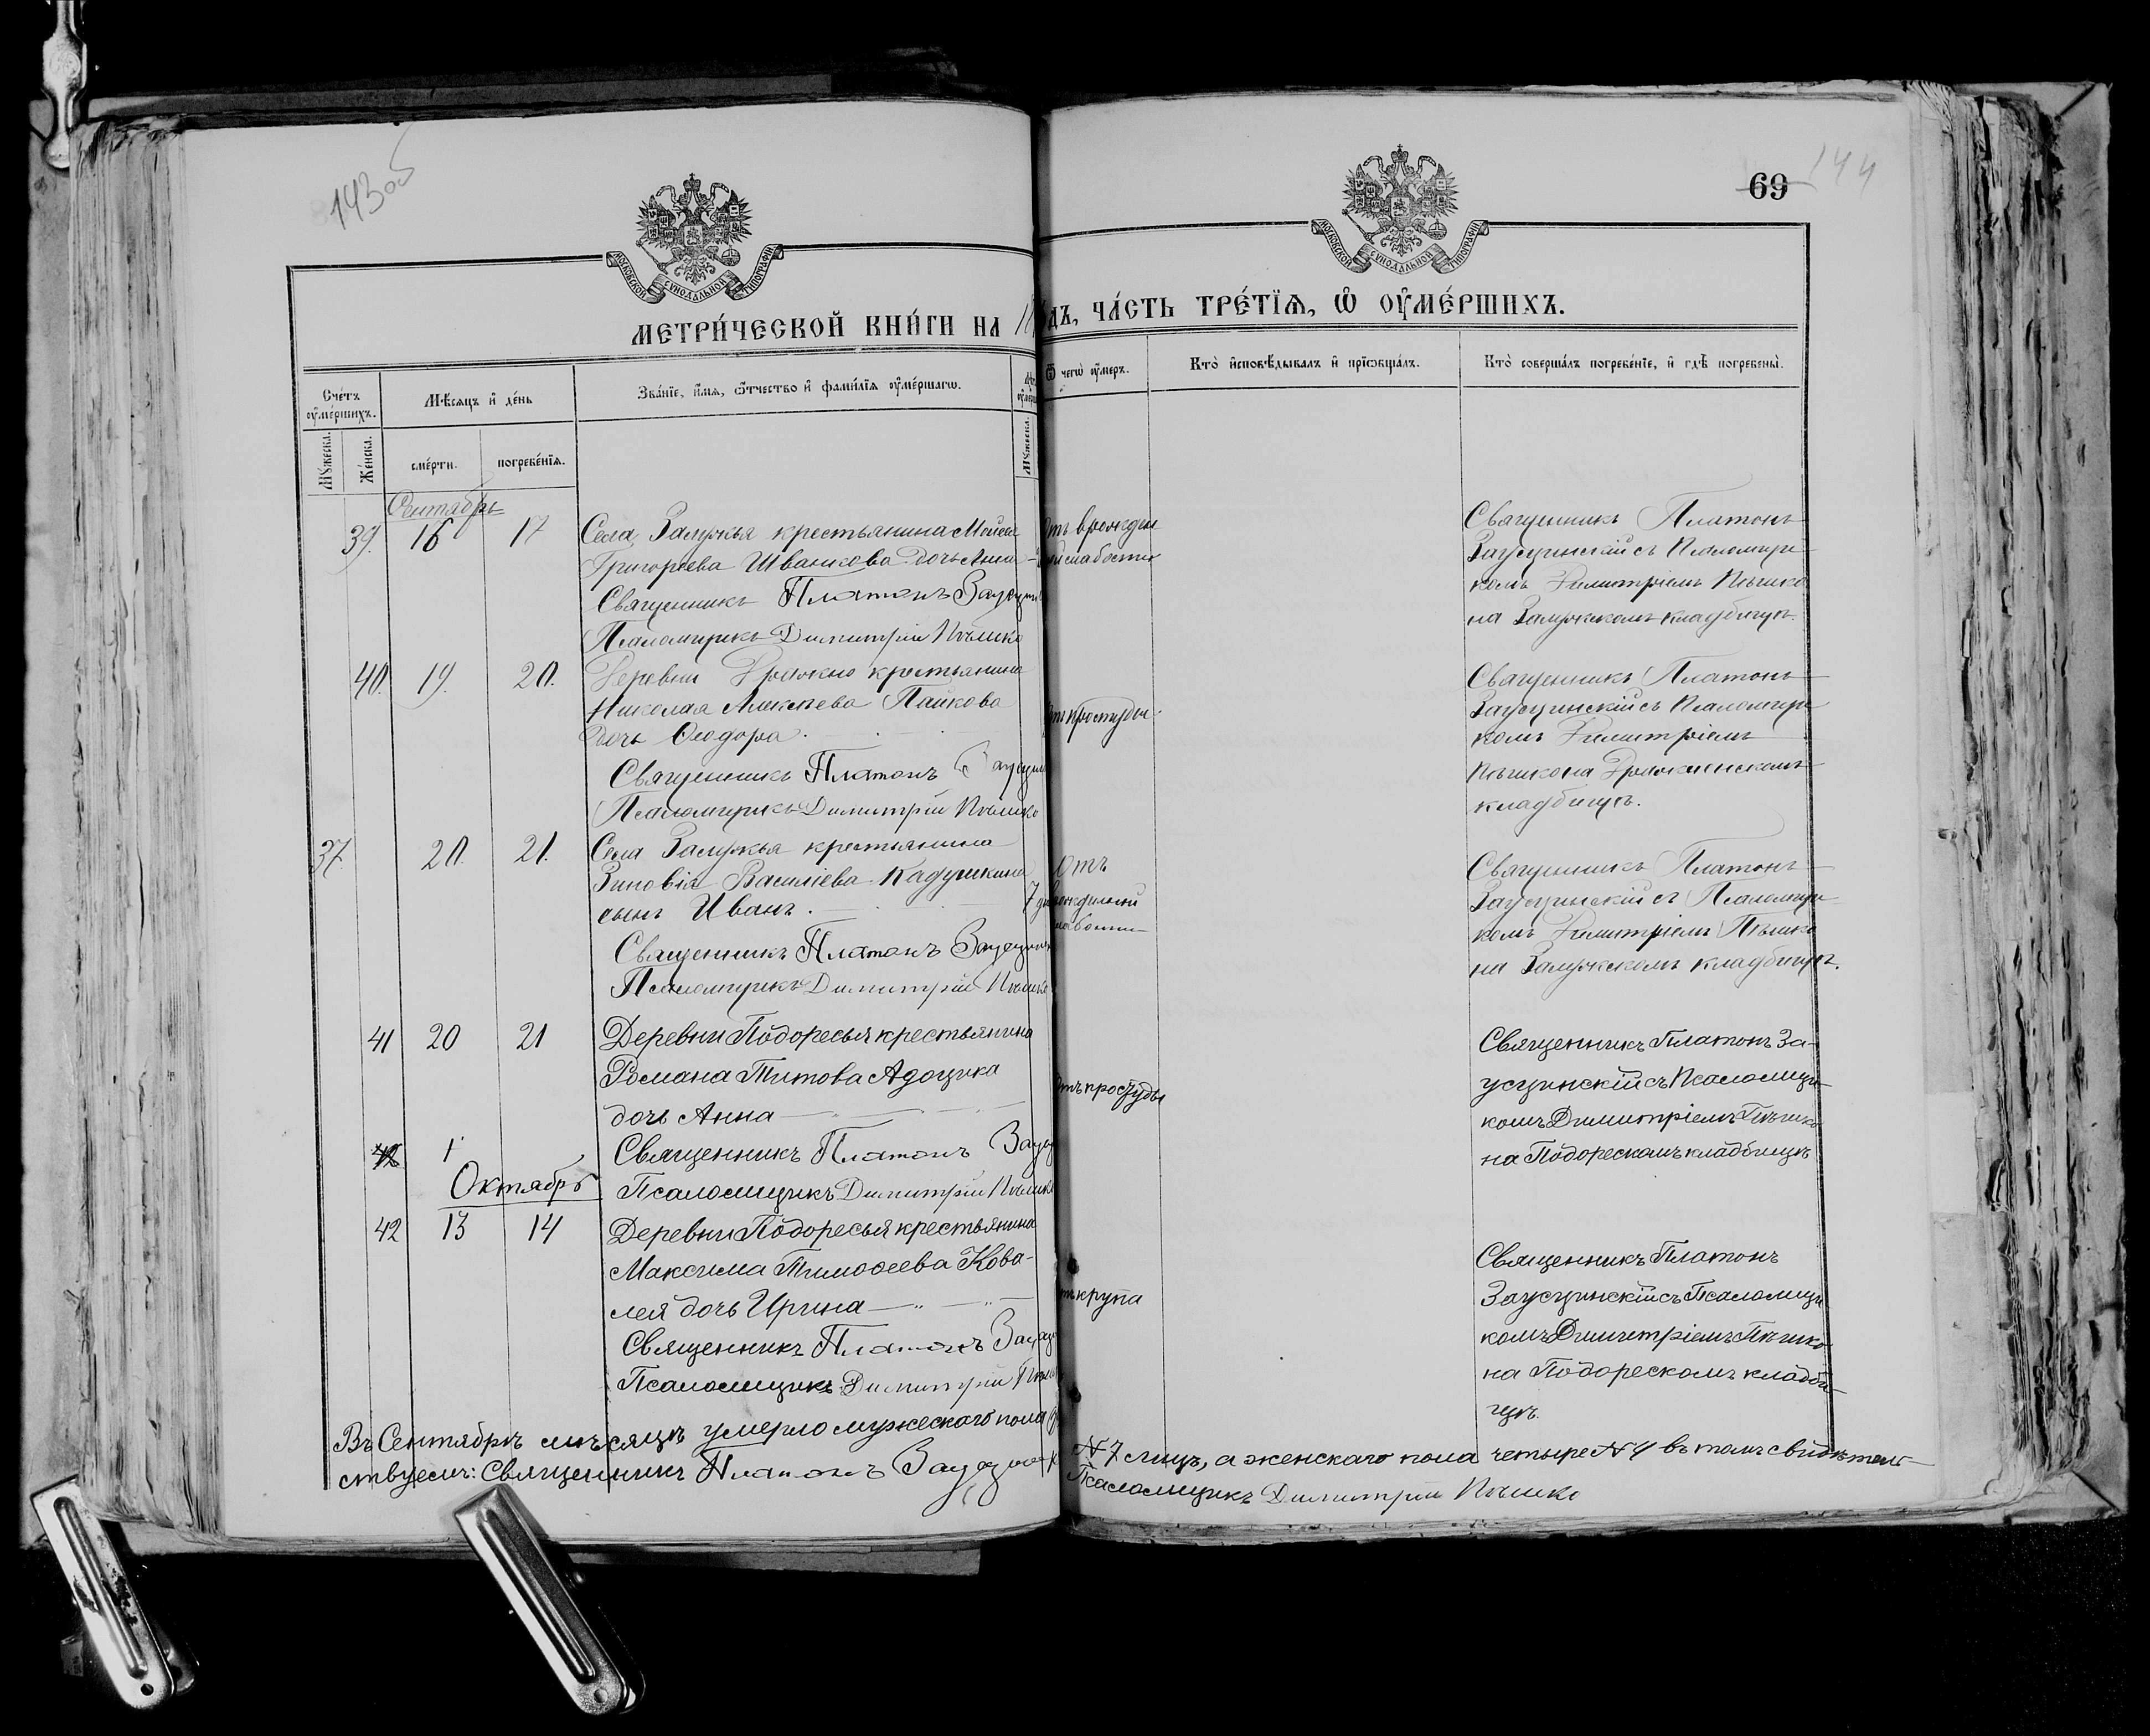 143об
144
69
МОСКОВСКОЙ СУНОДАЛЬНОЙ ТИПОГРАФІИ
МОСКОВСКОЙ СУНОДАЛЬНОЙ ТИПОГРАФІИ
МЕТРИ́ЧЕСКОЙ КНИ́ГИ НА
ДЪ, ЧА́СТЬ ТРЕ́ТЇѦ, Ѡ҆ ОУ҆МЕ́РШИХЪ.
Сче́тъ оу҆ме́ршихъ.
Мѣ́сяцъ и҆ де́нь
Зва́нїе, и҆́мѧ, ѻ҆́тчество и҆ фами́лїѧ оу҆ме́ршагѡ.
Ѿ чегѡ̀ оу҆́меръ.
Кто̀ и҆сповѣ́дывалъ и҆ прїѡбща́лъ.
Кто̀ соверша́лъ погребе́нїе, и҆ гдѣ̀ погребены̀.
Мꙋ́жеска.
Же́нска.
сме́рти.
погребе́нїѧ.
Мꙋ́жеска.
Сентябрь
39. 16 17 Села Залужья крестьянина Моисея
Григорьева Иванкова дочь Анна
Священникъ Платонъ
Псаломщикъ Димитрій Пѣшко
отъ врожден
слабости
Священникъ Платонъ
Заусцинскій съ Псаломщи-
комъ Димитріемъ Пѣшко
на Залужскомъ кладбищѣ.
40. 19. 20. Деревни Дражно крестьянина
Николая Алексѣева Пайкова
дочь Ѳеодора.
Священникъ Платонъ
Псаломщикъ Димитрій Пѣшко
отъ простуды.
Священникъ Платонъ
Заусцинскій съ Псаломщи-
комъ Димитріемъ
Пѣшко на Дражненскомъ
кладбищѣ.
37. 20. 21. Села Залужья крестьянина
Зиновія Василіева Кадушкина
сынъ Иванъ. 7
Священникъ Платонъ
Псаломщикъ Димитрій Пѣшко
Отъ
Священникъ Платонъ
Заусцинскій съ Псаломщи-
комъ Димитріемъ Пѣшко
на Залужскомъ кладбищѣ.
41 20 21 Деревни Подоресья крестьянина
Романа Титова Адоцика
дочь Анна
Священникъ Платонъ
Псаломщикъ Димитрій Пѣшко
отъ простуды
Священникъ Платонъ За-
усцинскій съ Псаломщи-
комъ Димитріемъ Пѣшко
на Подорескомъ кладбищѣ
42 1
Октябрь
42 13 14 Деревни Подоресья крестьянина
Максима Тимоѳеева Кова-
лея дочь Ирина
Священникъ Платонъ
Псаломщикъ Димитрій
отъ крупа
Священникъ Платонъ
Заусцинскій съ Псаломщи-
комъ Димитріемъ Пѣшко
на Подорескомъ кладби-
щѣ.
Въ Сентябрѣ мѣсяцѣ умерло мужескаго пола
№ 7 лицъ, а женскаго пола четыре № 4 въ томъ свидѣтель-
ствуемъ: Священникъ Платонъ
Псаломщикъ Димитрій Пѣшко